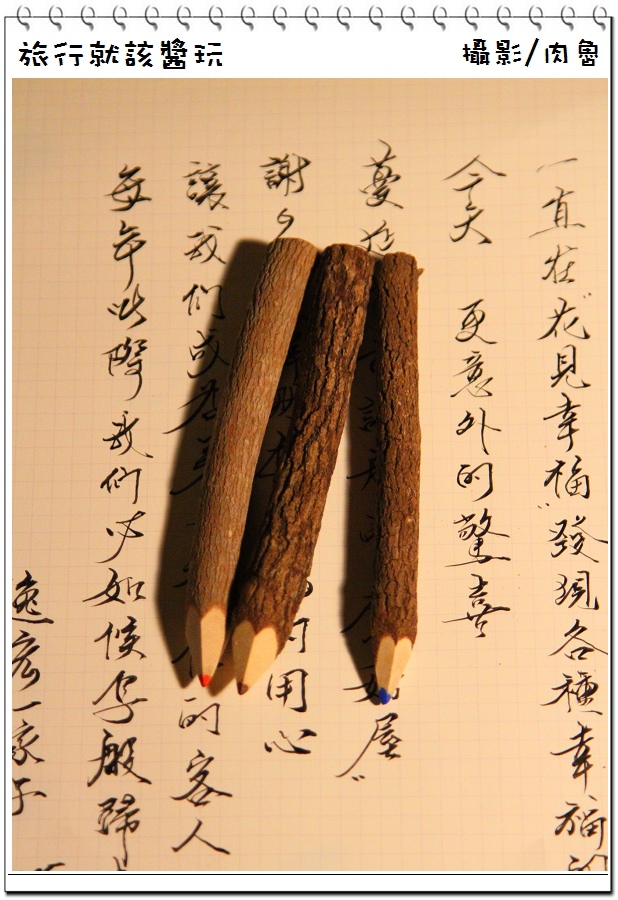 旅行就該醬玩
攝影/肉魯
一直在"花見幸福"發現各種幸福的
今天 更意外的驚喜
蔓 屋"
謝 的用心
讓我們成為 的客人
每年此際我們必如候鳥般歸
逸宏一家子